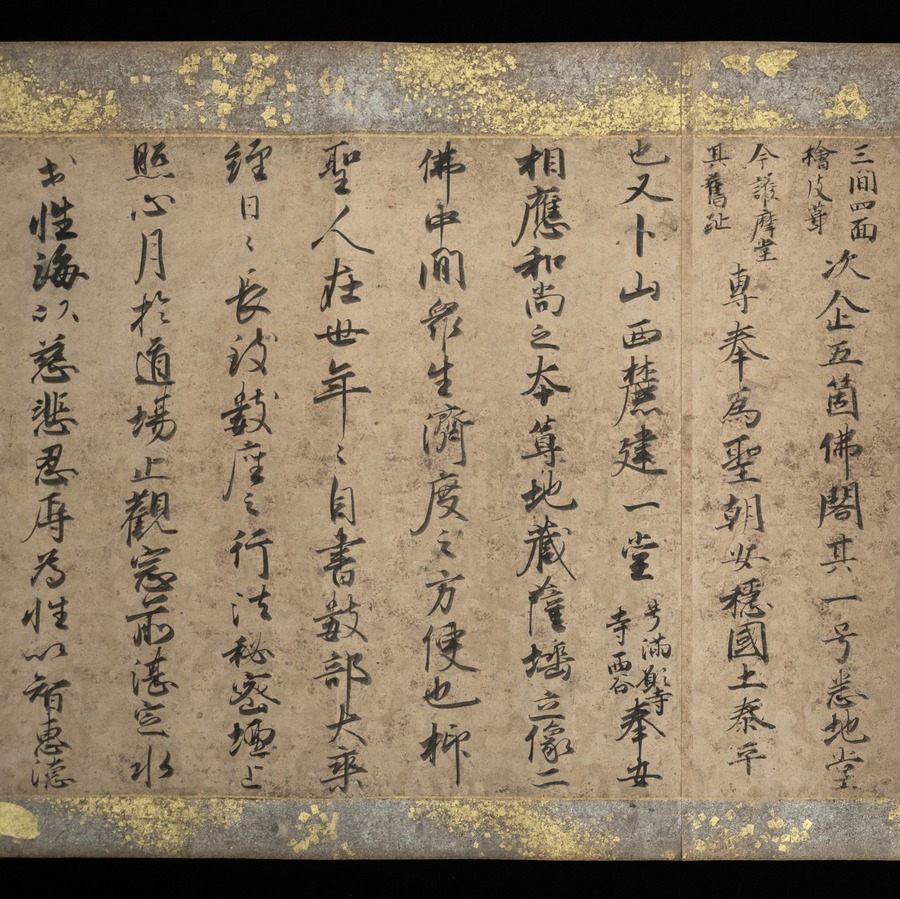 三間四面
檜皮葺
次企五箇佛閣其一号悉地堂
今護摩堂
其舊趾
専奉為聖朝安穏國土泰平
也又卜山西麓建一堂
号滿願寺
寺西谷
奉安
相應和尚之本尊地藏薩埵立像二
佛中間衆生濟度之方便也抑
聖人在世年〻自書数部大乘
經日〻長致数座之行法秘密壇上
照心月於道場止觀窓前湛定水
於性海以慈悲忍辱為性以智惠